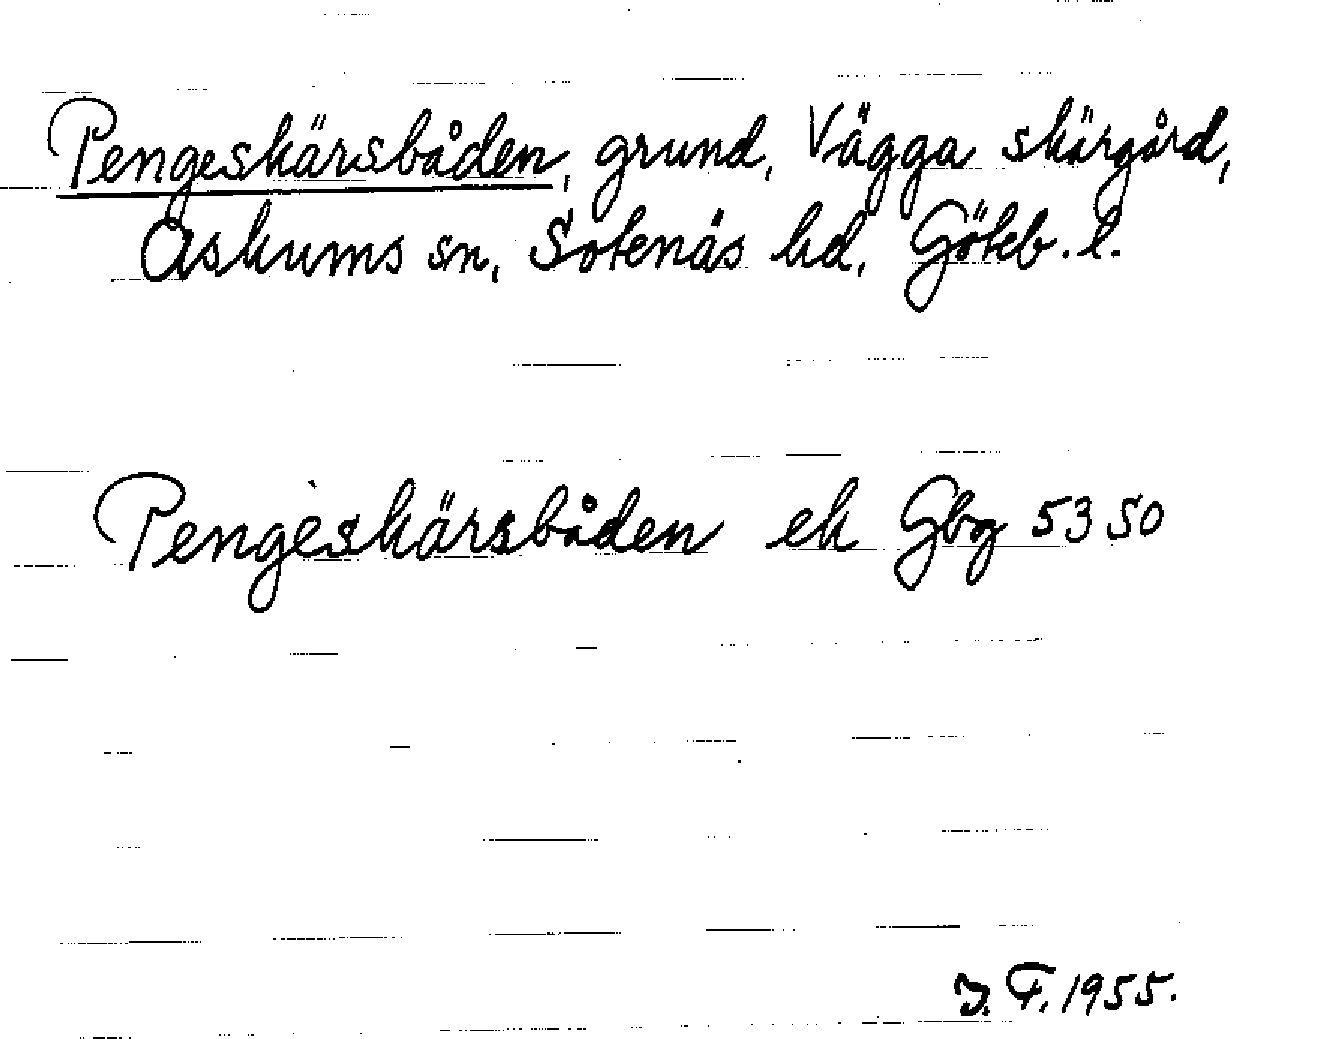 Pengeskärsbåden, grund, Vägga skärgård,
Askums sn, Sotenäs hd, Göteb. l.
Pengèskärsbåden ek Gbg 5350
J. F. 1955.